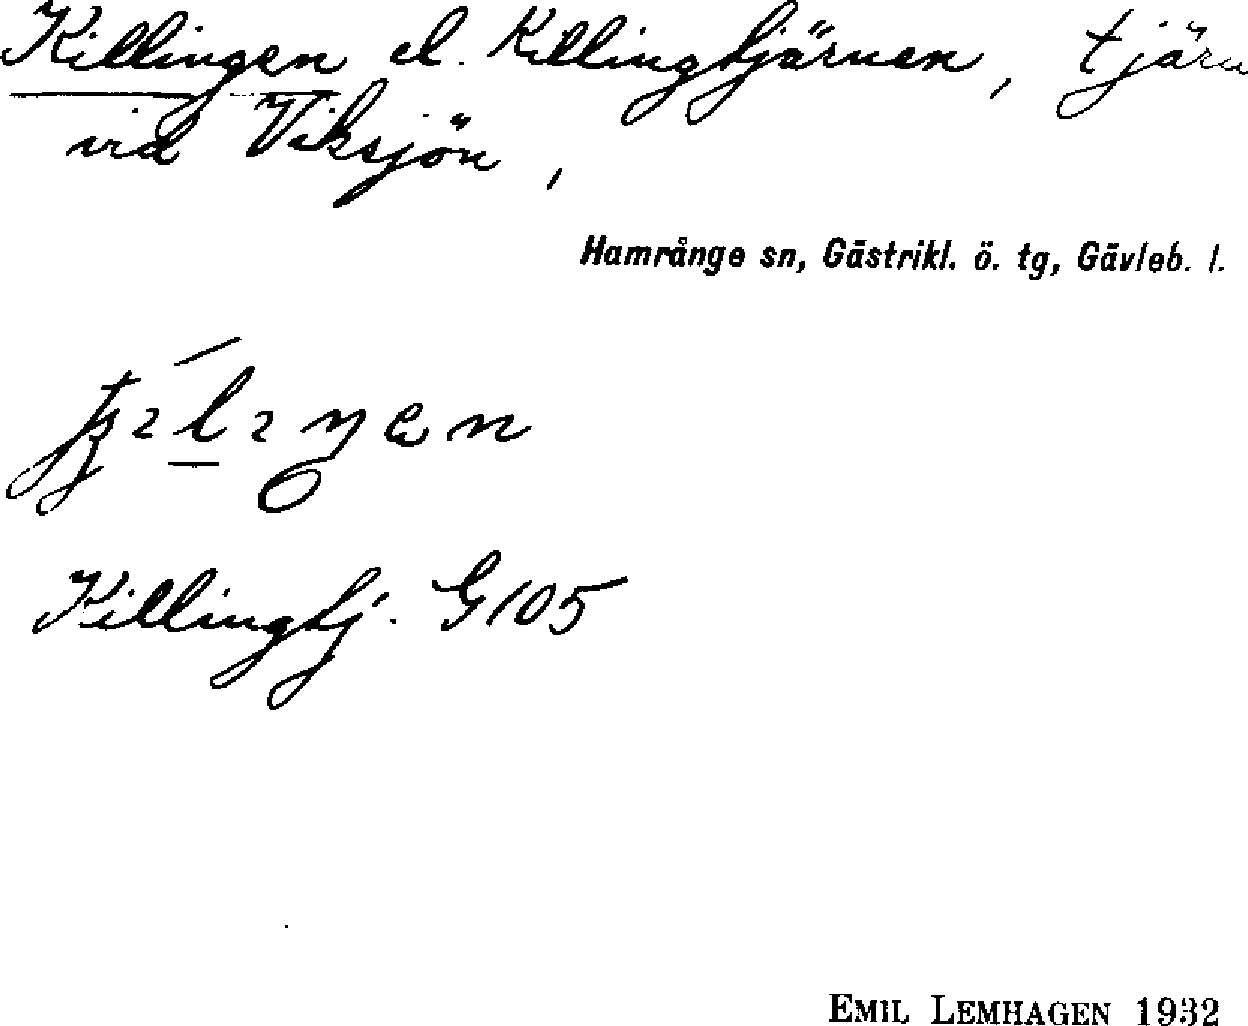 Killingen el. Killingtjärnen, tjärn
vid Viksjön,
Hamrånge sn, Gästrikl. ö. tg, Gävleb. l.
Killingtj. G105
EMIL LEMHAGEN 1932